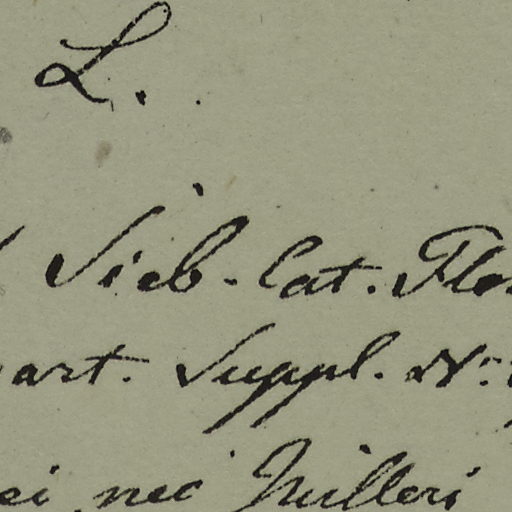 L.
Sieb. Cat. Flor
art. Suppl. No.
ei nec Milleri